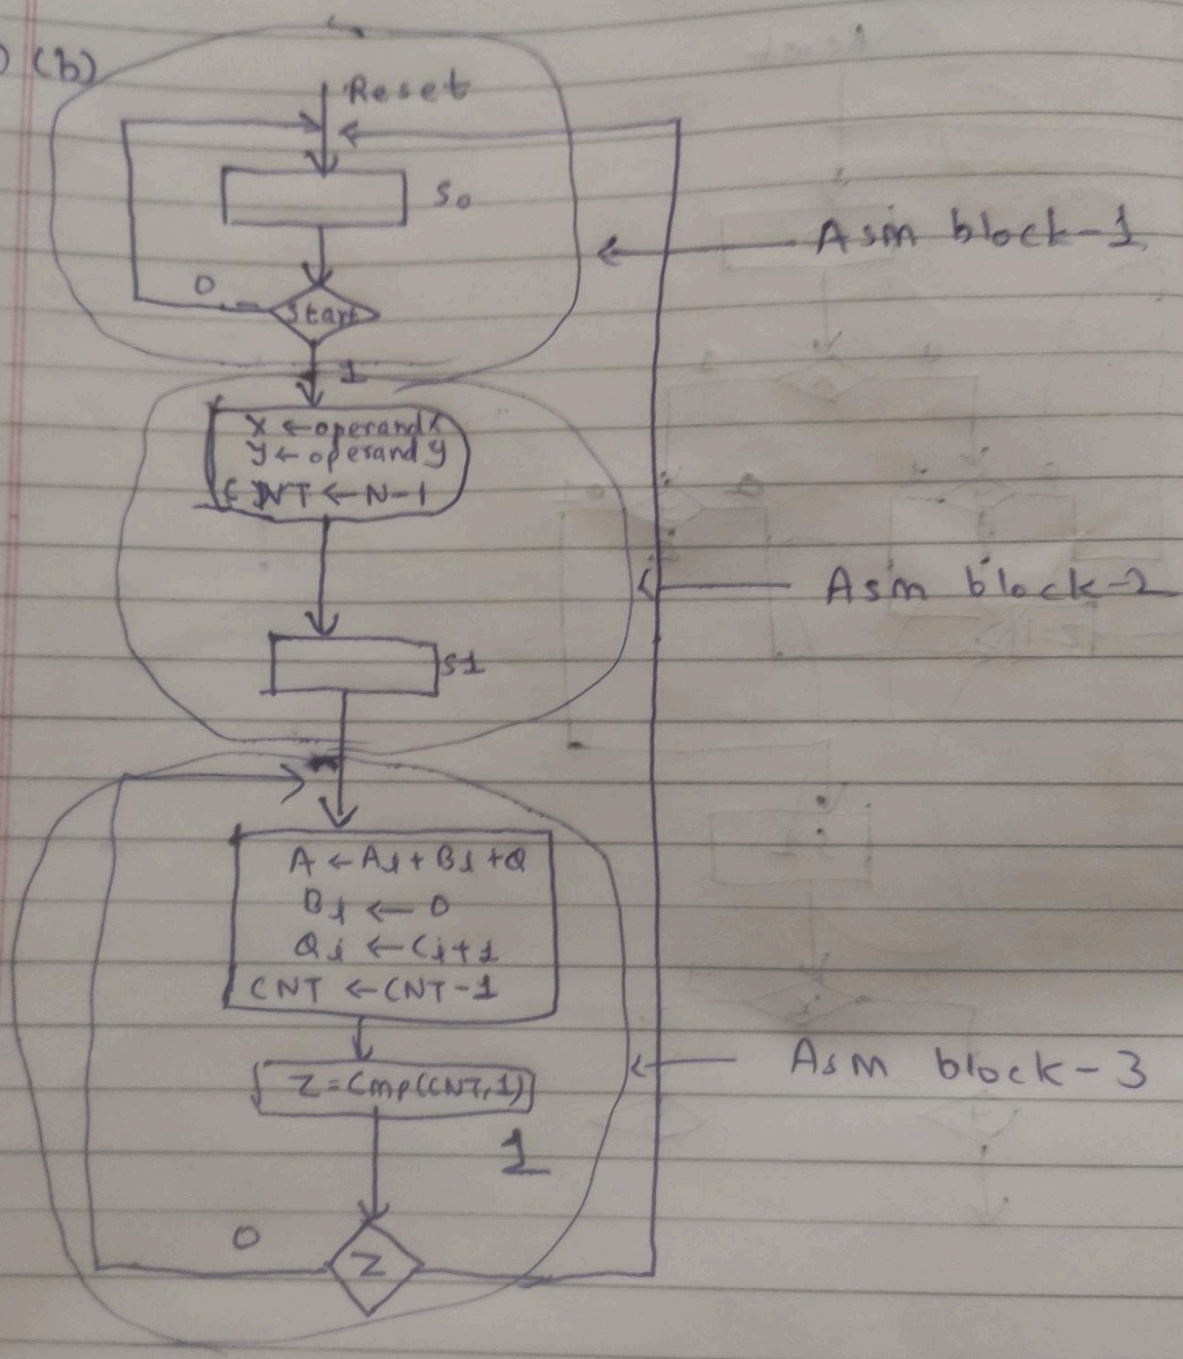 (b)
Reset
S0
0
Start
Asm block-1
1
X ← operandX
Y ← operand y
CNT ← N-1
Asm block-2
S1
A ← Ai + Bi + Q
Bi ← 0
Qi ← Ci+1
CNT ← CNT-1
Z = Cmp(CNT,1)
Asm block-3
1
0
Z